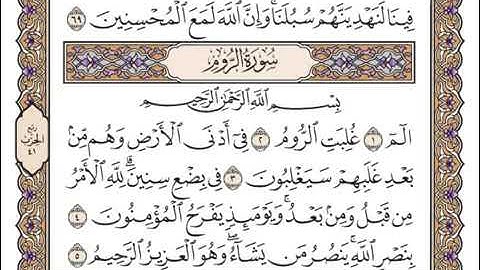 فِينَا لَنَهْدِيَنَّهُمْ سُبُلَنَا ۚ وَإِنَّ اللَّهَ لَمَعَ الْمُحْسِنِينَ ٦٩
سُورَةُ الرُّومِ
بِسْمِ اللَّهِ الرَّحْمَٰنِ الرَّحِيمِ
الٓمٓ ١ غُلِبَتِ الرُّومُ ٢ فِي أَدْنَى الْأَرْضِ وَهُم مِّنْ
بَعْدِ غَلَبِهِمْ سَيَغْلِبُونَ ٣ فِي بِضْعِ سِنِينَ ۗ لِلَّهِ الْأَمْرُ
مِن قَبْلُ وَمِنْ بَعْدُ ۚ وَيَوْمَئِذٍ يَفْرَحُ الْمُؤْمِنُونَ ٤
بِنَصْرِ اللَّهِ ۚ يَنصُرُ مَن يَشَاءُ ۖ وَهُوَ الْعَزِيزُ الرَّحِيمُ ٥
ربع
الحزب
٤١